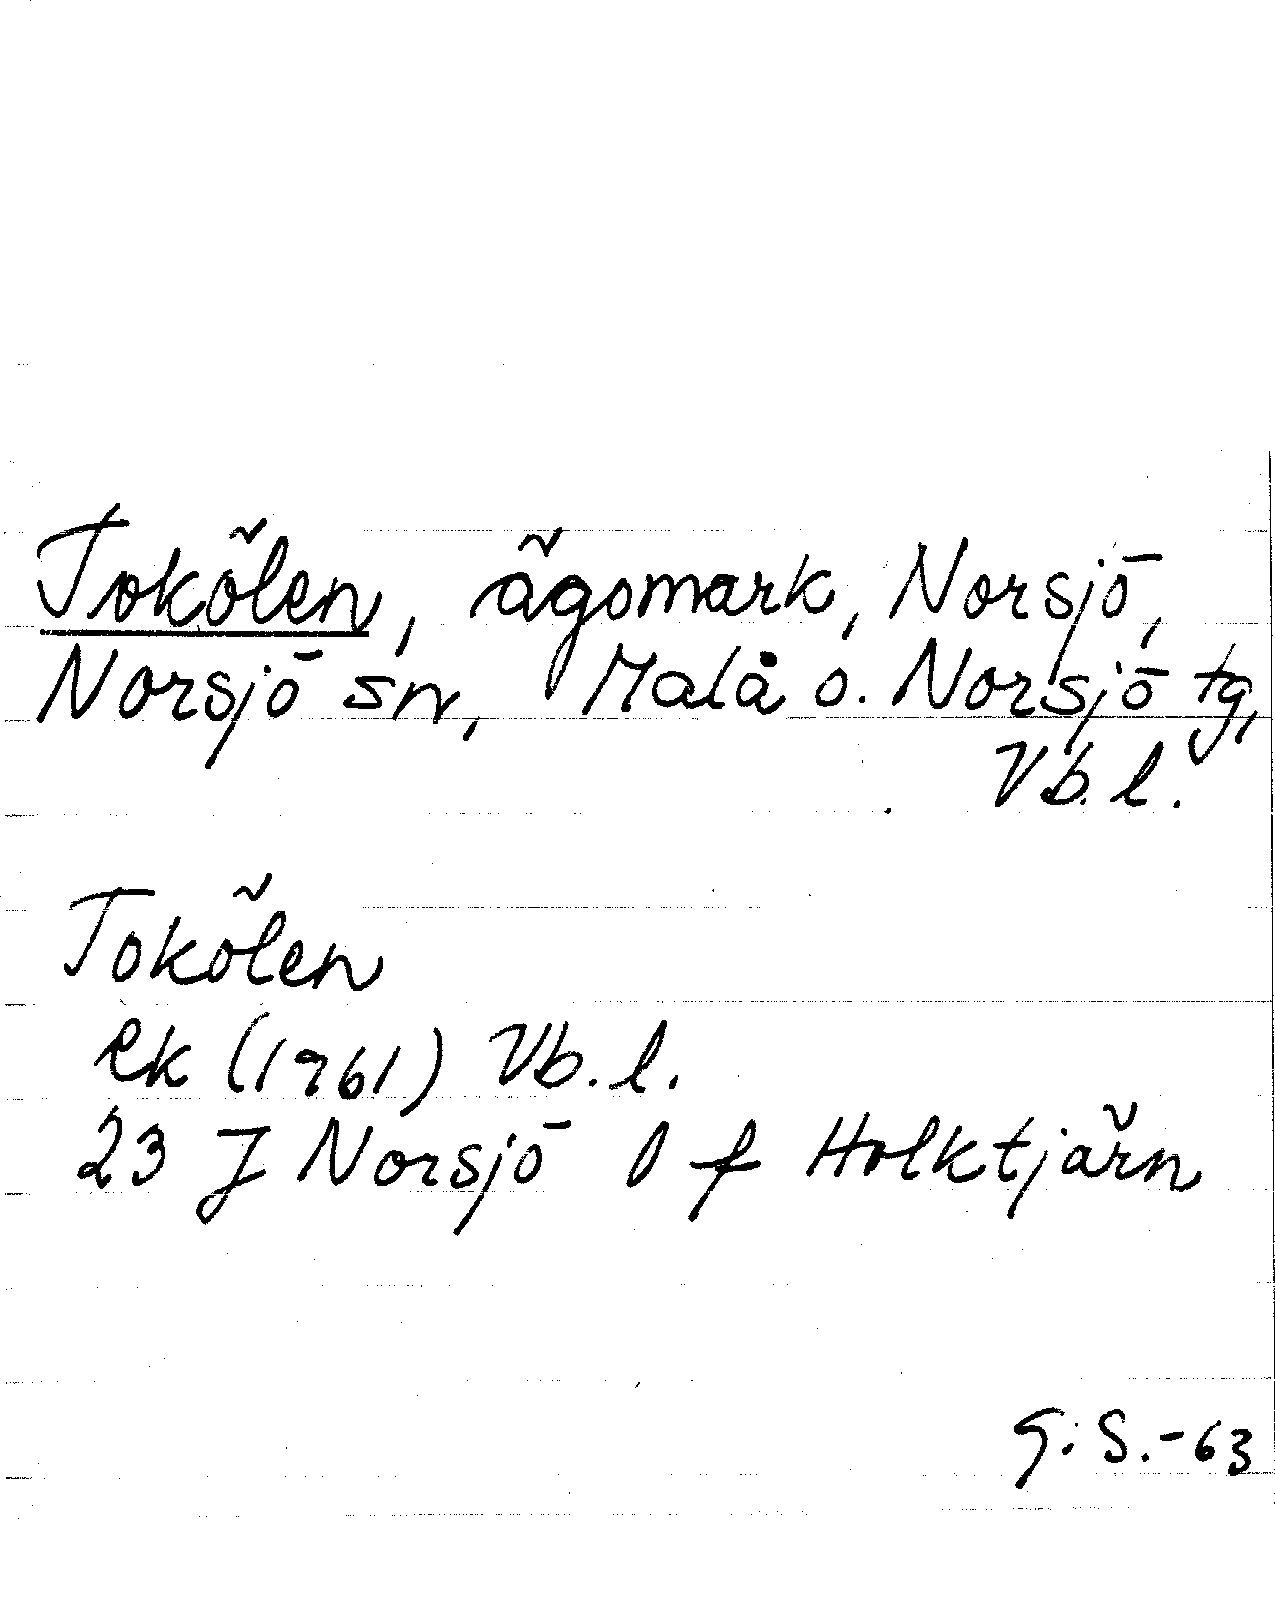 Tokölen, ägomark, Norsjö,
Norsjö sn, Malå o. Norsjö tg,
Vb. l.
Tokölen
ek (1961) Vb. l.
23 J Norsjö l f Holktjärn
G. S. -63